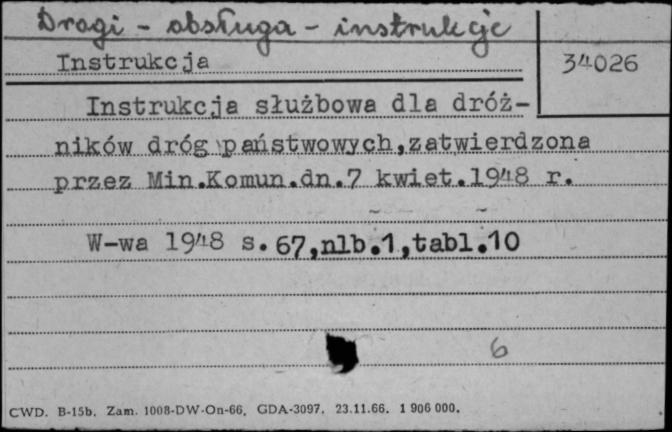 Drogi - obsługa - instrukcje
Instrukcja
34026
Instrukcja służbowa dla dróż-
ników dróg państwowych,zatwierdzona
przez Min.Komun.dn.7 kwiet.1948 r.
W-wa 1948 s.67,nlb.1,tabl.10
6
CWD. B-15b. Zam. 1008-DW-On-66, GDA-3097. 23.11.66. 1 906 000.